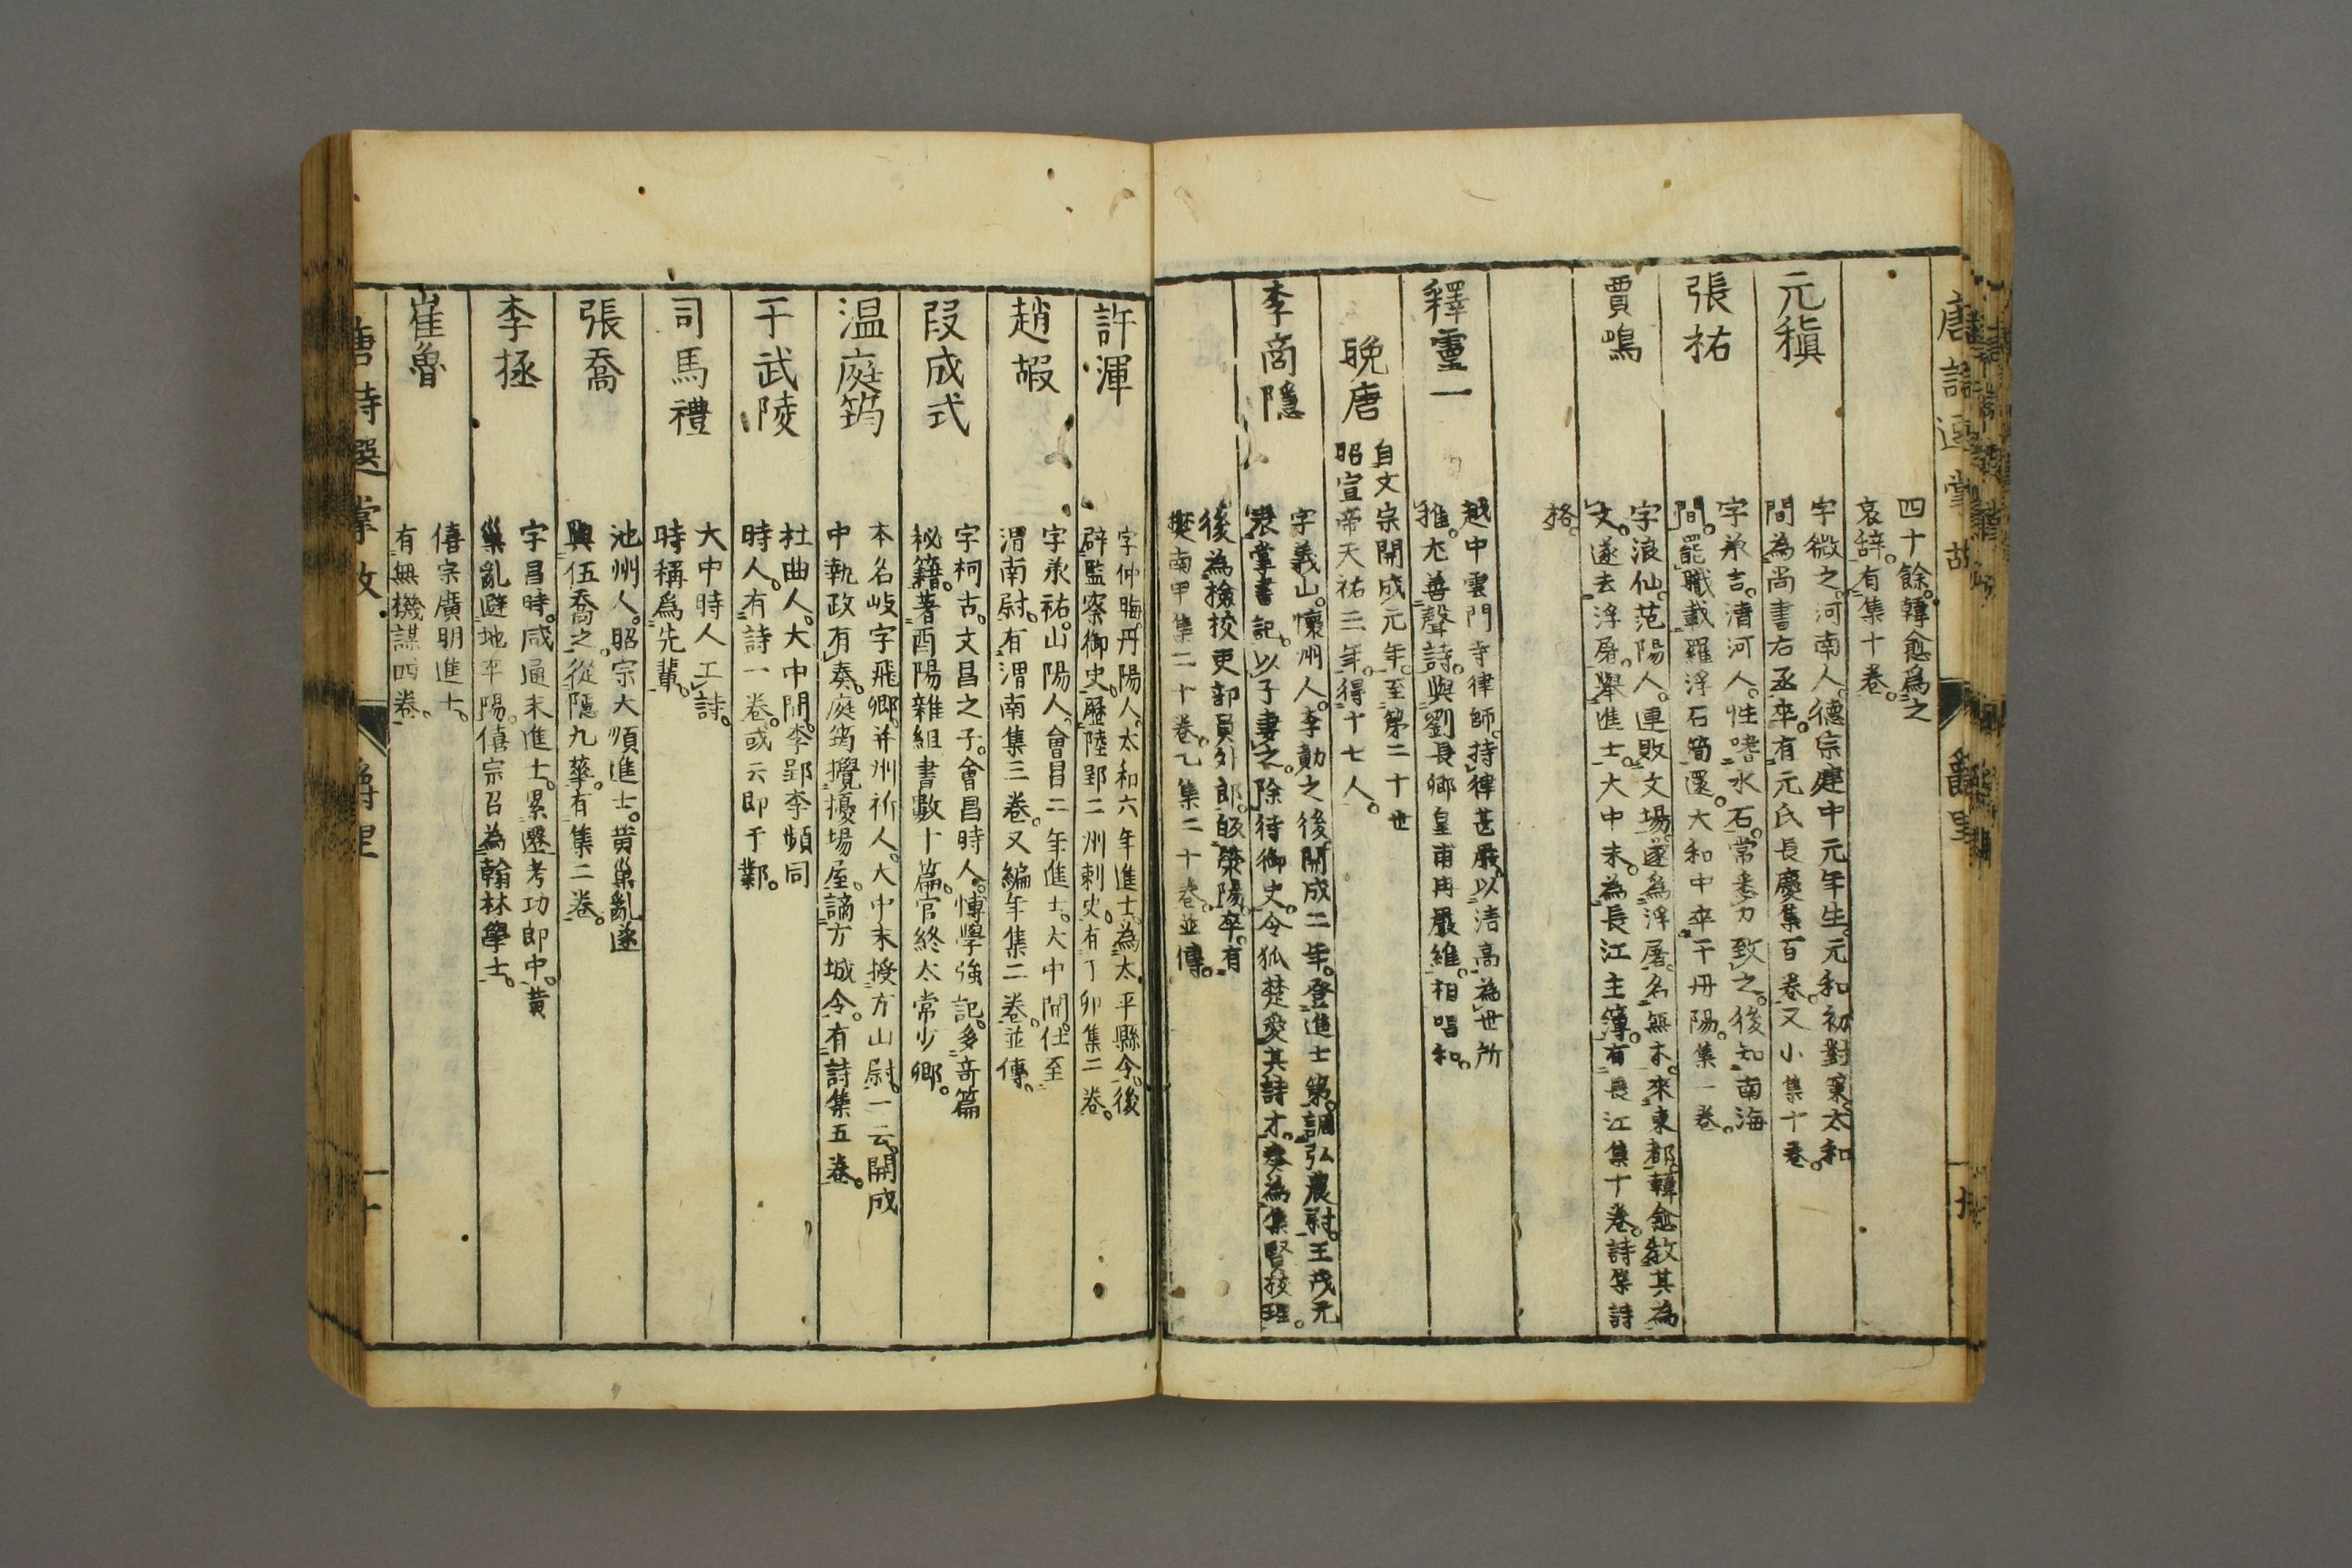 四十餘。韓愈爲之
哀辞。有集十卷。
元稹
字微之。河南人。德宗建中元年生。元和初對策。太和
間為尚書右丞卒。有元氏長慶集百卷。又小集十卷。
張祐
字承吉。清河人。性嗜水石。常悉力致之。後知南海
間。罷職載羅浮石筍還。大和中卒于丹陽。集一卷。
賈嶋
字浪仙。范陽人。連敗文場。遂爲浮屠。名無本。來東都。韓愈敎其為
文。遂去浮屠。舉進士。大中末。為長江主簿。有長江集十卷。詩集詩
格。
釋靈一
越中雲門寺律師。持律甚嚴。以清高為世所
推。尤善聲詩。與劉長卿皇甫冉嚴維。相唱和。
晩唐
自文宗開成元年。至第二十世
昭宣帝天祐三年。得十七人。
李商隱
字義山。懷州人。李勣之後。開成二年。登進士第。調弘農尉。王茂元
表掌書記。以子妻之。除待御史。令狐楚愛其詩才。奏為集賢挍理。
後為撿挍吏部員外郎。皈滎陽卒。有
樊南甲集二十卷。乙集二十卷。並傳。
許渾
字仲晦。丹陽人。太和六年進士。為太平縣令。後
辟監察御史。歴陸郢二洲刺史。有丁卯集二卷。
趙嘏
字承祐。山陽人。會昌二年進士。大中間。仕至
渭南尉。有渭南集三卷。又編年集二卷。並傳。
段成式
字柯古。文昌之子。會昌時人。博學強記。多竒篇
秘籍。著酉陽雑俎書數十篇。官終太常少卿。
温庭筠
本名岐字飛卿。并州祈人。大中末授方山尉。一云。開成
中執政有奏。庭筠攪擾場屋。謫方城令。有詩集五卷。
于武陵
杜曲人。大中間。李郢李頻同
時人。有詩一卷。或云即于鄴。
司馬禮
大中時人工詩。
時稱爲先輩。
張喬
池州人。昭宗大順進士。黄巢亂遂
與伍喬之。從隠九華。有集二卷。
李拯
字昌時。咸通末進士。累遷考功郎中。黄
巢亂避地平陽。僖宗召為翰林學士。
崔魯
僖宗廣明進士。
有無機謀四卷。
唐詩選掌故
爵里